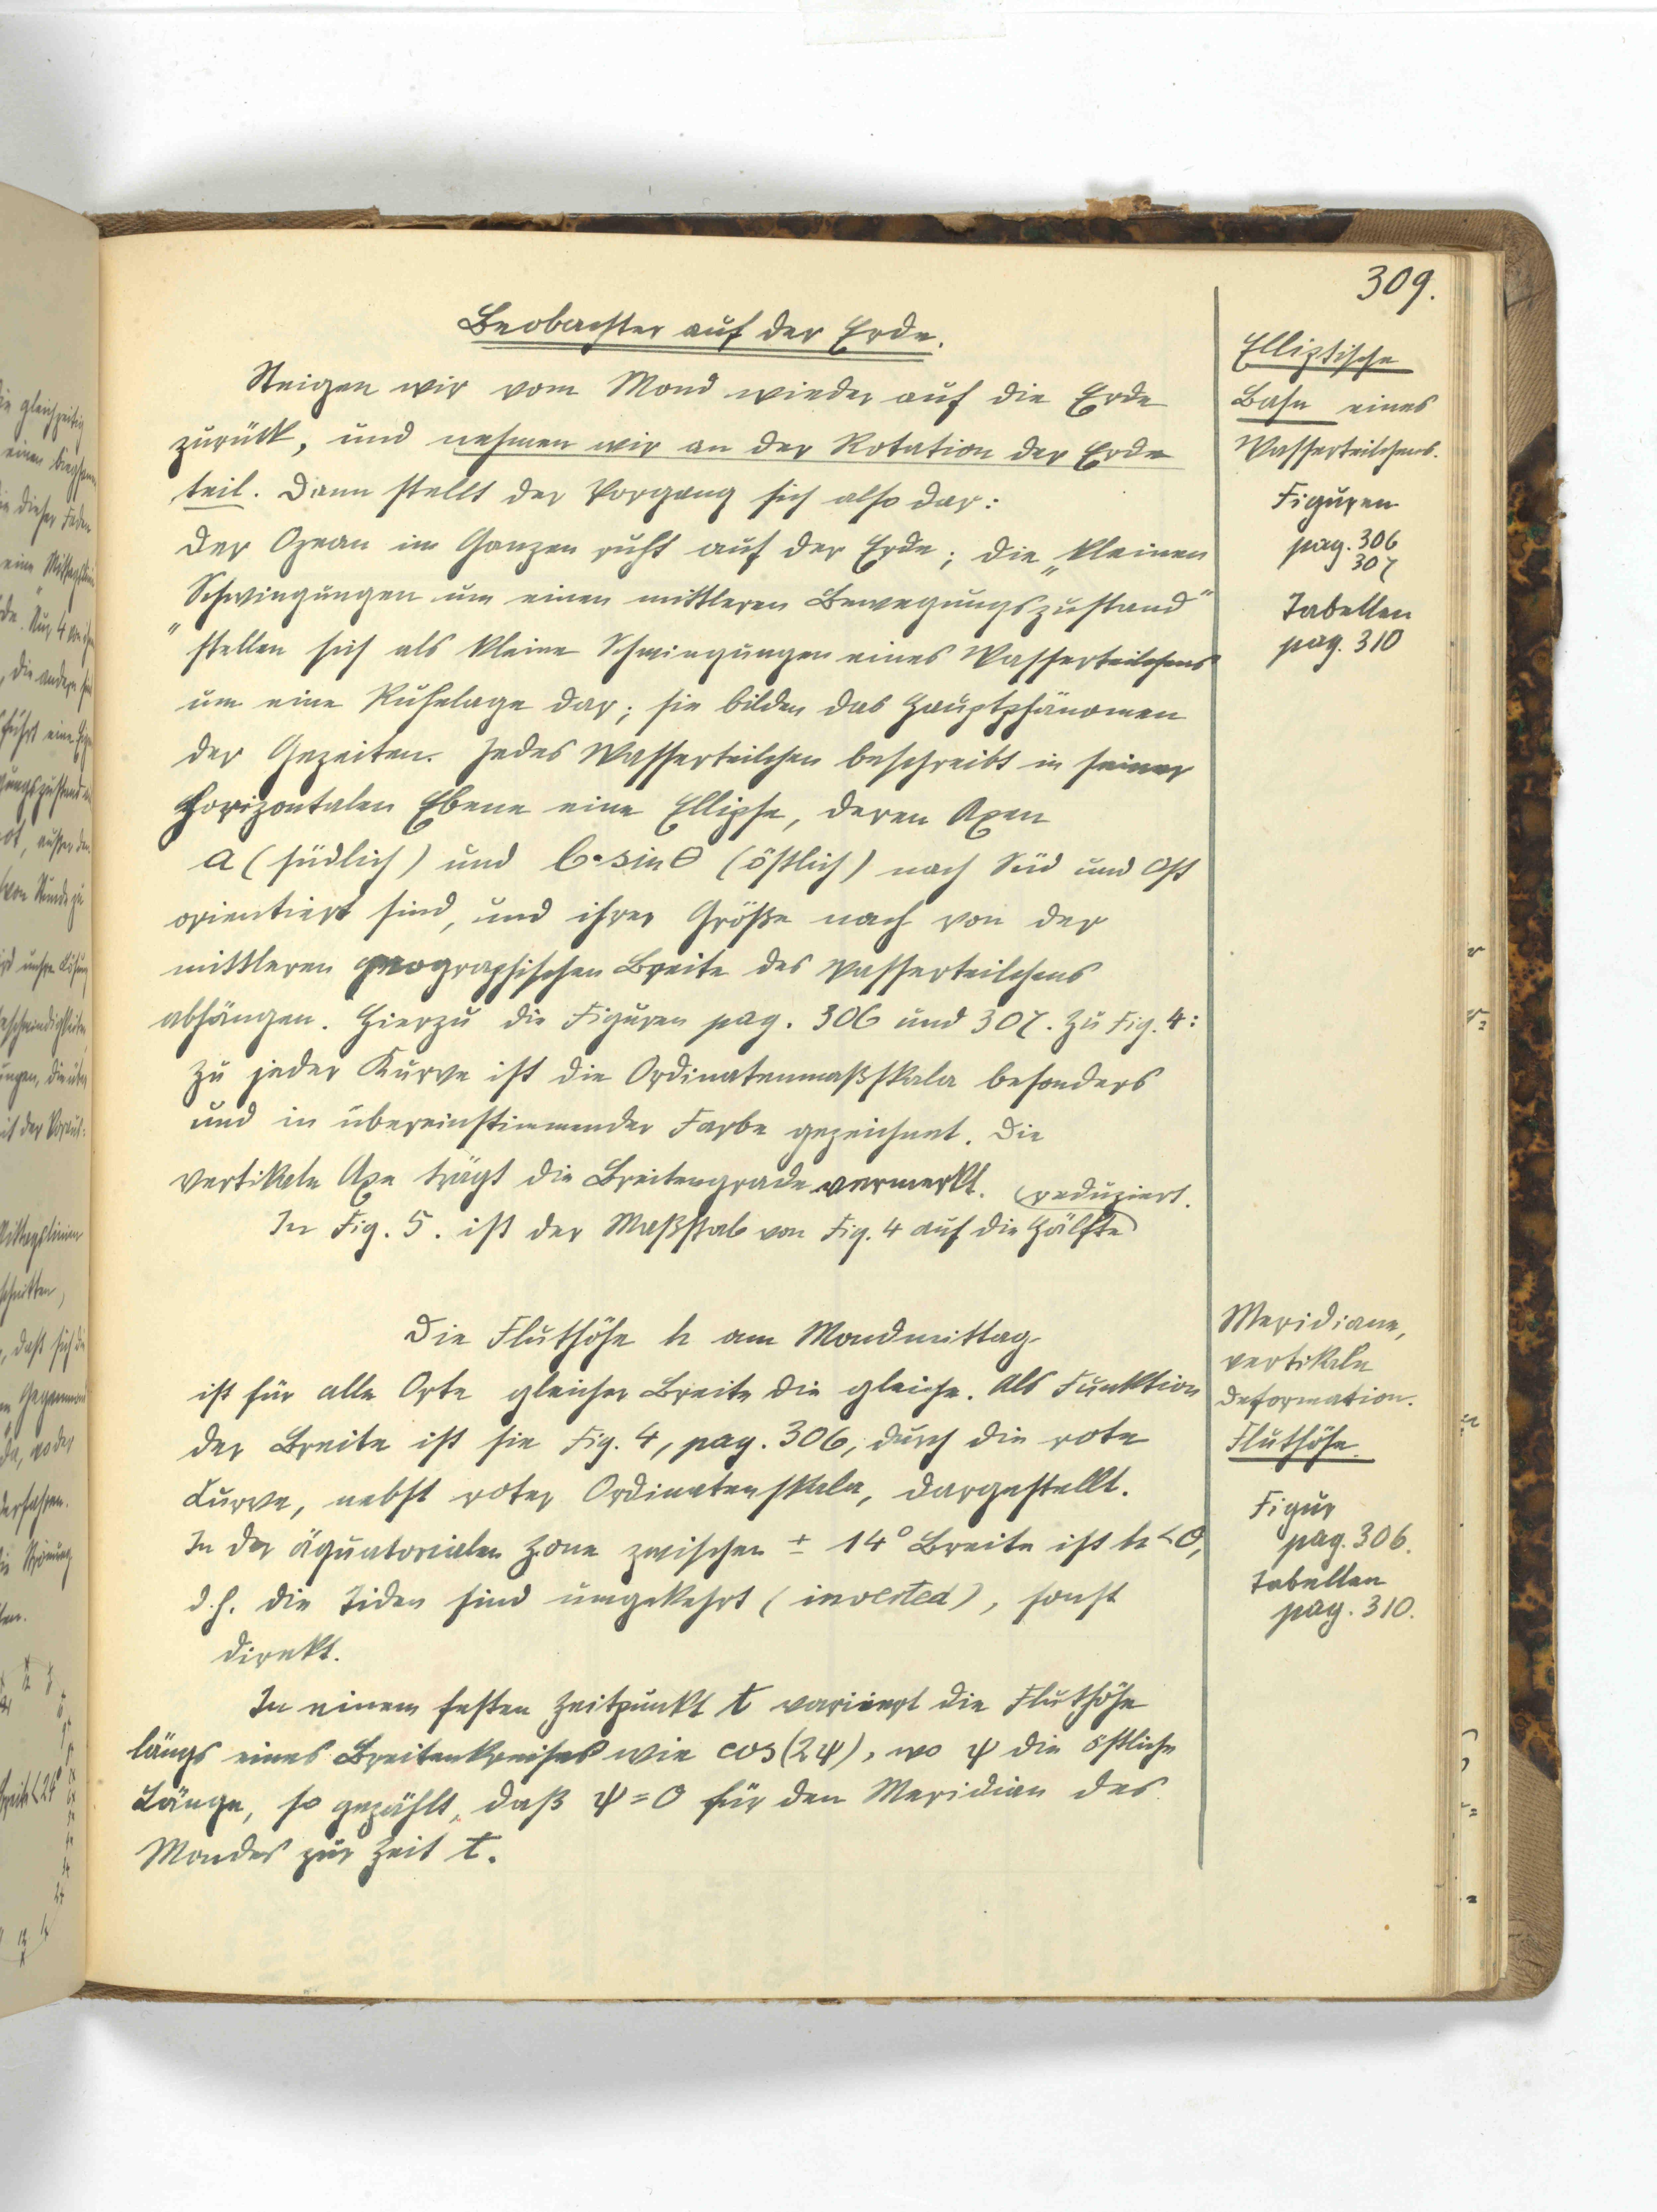 309.
Beobachter auf der Erde.
Steigen wir vom Mond wieder auf die Erde
zurück, und nehmen wir an der Rotation der Erde
teil. Dann stellt der Vorgang sich also dar:
Der Ozean im Ganzen ruht auf der Erde; die „kleinen
Schwingungen um einen mittleren Bewegungszustand"
" stellen sich als kleine Schwingungen eines Wasserteilchens
um eine Ruhelage dar; sie bilden das Hauptphänomen
der Gezeiten. Jedes Wasserteilchen beschreibt in seiner
horizontalen Ebene eine Ellipse, deren Axen
a (südlich) und b·sin θ (östlich) nach Süd und Ost
orientiert sind, und ihrer Größe nach von der
mittleren geographischen Breite des Wasserteilchens
abhängen. Hierzu die Figuren pag. 306 und 307. Zu Fig. 4:
Zu jeder Kurve ist die Ordinatenmaßskala besonders
und in übereinstimmender Farbe gezeichnet. Die
vertikale Axe trägt die Breitengrade vermerkt.
In Fig. 5. ist der Maßstab von Fig. 4 auf die Hälfte
(reduziert.
Elliptische
Bahn eines
Wasserteilchens.
Figuren
pag. 306
307
Tabellen
pag. 310
Die Fluthöhe h am Mondmittag
ist für alle Orte gleicher Breite die gleiche. Als Funktion
der Breite ist sie Fig. 4, pag. 306, durch die rote
Curve, nebst roter Ordinatenskala, dargestellt.
In der äquatorialen Zone zwischen ± 14° Breite ist h<0,
d.h. die Tiden sind umgekehrt (inverted), sonst
direkt.
In einem festen Zeitpunkt t variiert die Fluthöhe
längs eines Breitenkreises wie cos(2ψ), wo ψ die östliche
Länge, so gezählt, daß ψ=0 für den Meridian des
Mondes zur Zeit t.
Meridiane,
vertikale
Deformation.
Fluthöhe.
Figur
pag. 306.
Tabellen
pag. 310.